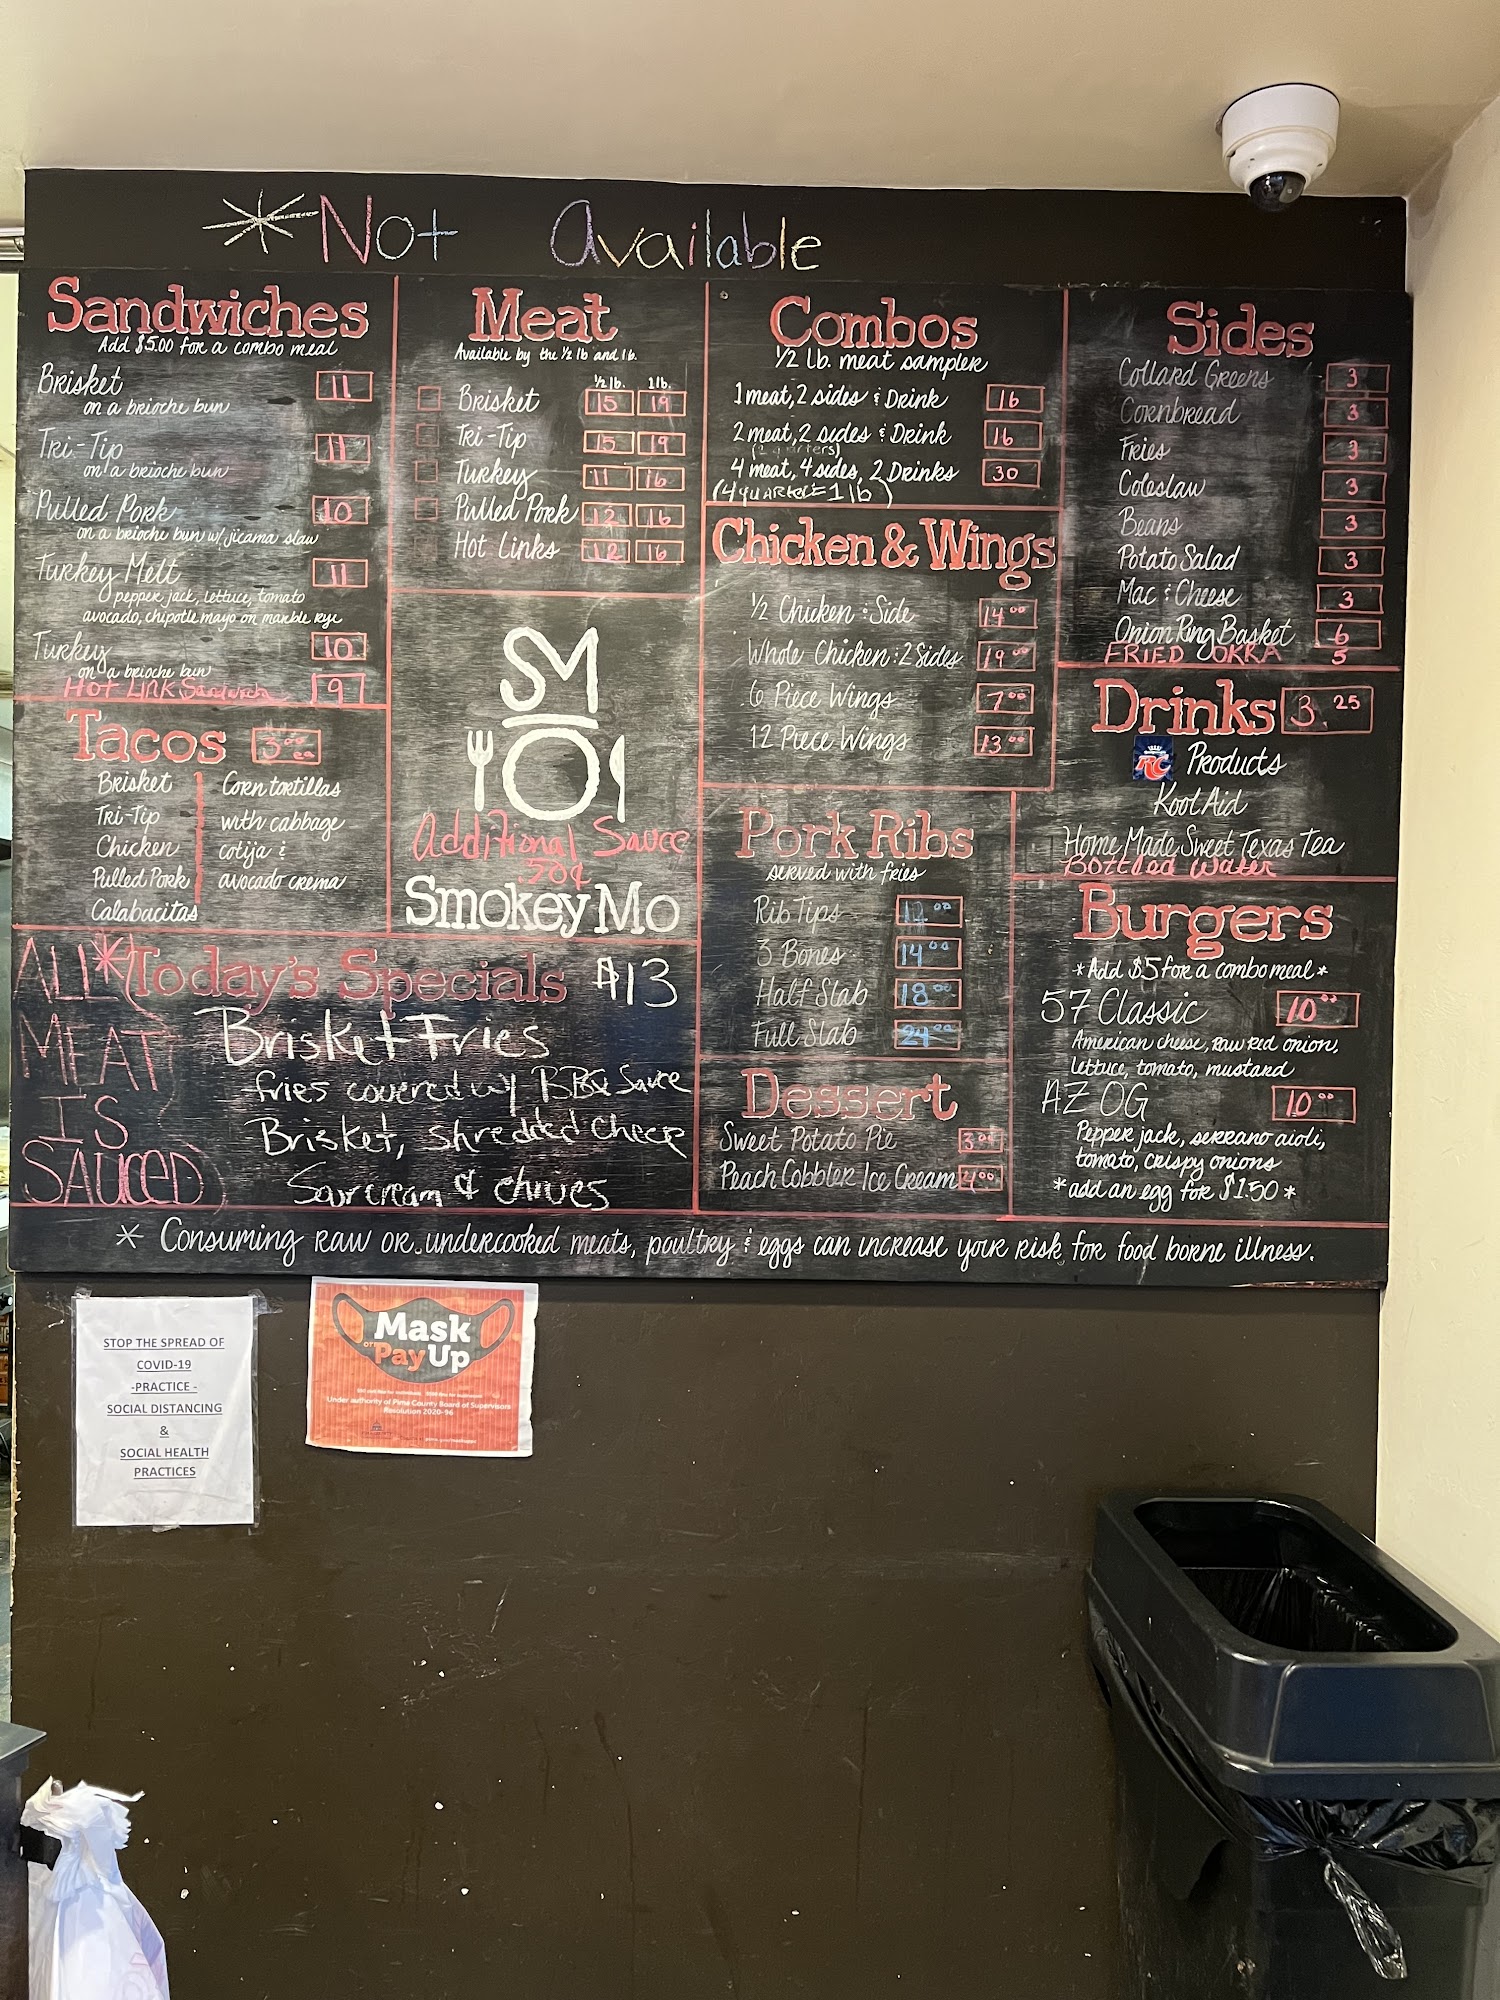 *Not Available
Sandwiches
Add $5.00 for a combo meal
Brisket 11
on a brioche bun
Tri-Tip 11
on a brioche bun
Pulled Pork 10
on a brioche bun w/ jicama slaw
Turkey Melt 11
pepper jack, lettuce, tomato
avocado, chipotle mayo on marble rye
Turkey 10
on a brioche bun
Hot Link Sandwich 9
Tacos 3.00 ea
Brisket
Tri-Tip
Chicken
Pulled Pork
Calabacitas
Corn tortillas
with cabbage
cotija &
avocado crema
Meat
Available by the 1/2 lb and 1 lb.
1/2 lb. 1 lb.
Brisket 15 19
Tri-Tip 15 19
Turkey 11 16
Pulled Pork 12 16
Hot Links 12 16
SM
Additional Sauce
.50¢
Smokey Mo
Combos
1/2 Lb. meat sampler
1 meat, 2 sides & Drink 16
2 meat, 2 sides & Drink 16
(2 quarters)
4 meat, 4 sides, 2 Drinks 30
(4 quarter = 1 lb)
Chicken & Wings
1/2 Chicken : Side 14.00
Whole Chicken : 2 Sides 19.00
6 Piece Wings 7.00
12 Piece Wings 13.00
Pork Ribs
served with fries
Rib Tips 12.00
3 Bones 14.00
Half Slab 18.00
Full Slab 24.00
Dessert
Sweet Potato Pie 3.00
Peach Cobbler Ice Cream 4.00
Sides
Collard Greens 3
Cornbread 3
Fries 3
Coleslaw 3
Beans 3
Potato Salad 3
Mac & Cheese 3
Onion Ring Basket 6
FRIED OKRA 5
Drinks 3.25
RC Products
Kool Aid
Home Made Sweet Texas Tea
Bottled Water
Burgers
*Add $5 for a combo meal*
57 Classic 10.00
American cheese, raw red onion,
lettuce, tomato, mustard
AZ OG 10.00
Pepper jack, serrano aioli,
tomato, crispy onions
*add an egg for $1.50*
ALL*
MEAT
IS
SAUCED
Today's Specials $13
Brisket Fries
-fries covered w/ BBQ Sauce
Brisket, shredded cheese
Sour cream & chives
* Consuming raw or undercooked meats, poultry & eggs can increase your risk for food borne illness.
STOP THE SPREAD OF
COVID-19
-PRACTICE -
SOCIAL DISTANCING
&
SOCIAL HEALTH
PRACTICES
Mask
or Pay Up
Under authority of Pima County Board of Supervisors
Resolution 2020-96